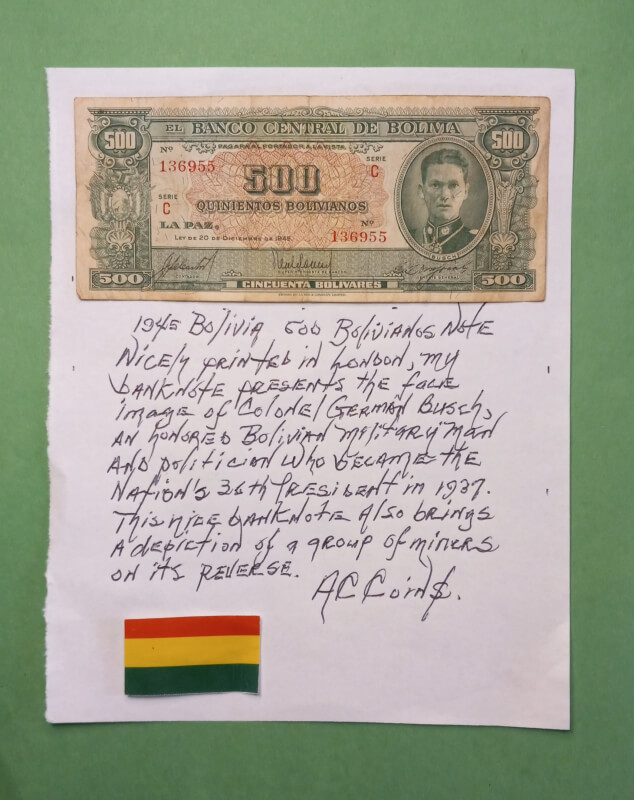 500 500
EL BANCO CENTRAL DE BOLIVIA
PAGARA AL PORTADOR A LA VISTA
Nº
136955
SERIE
C
500
SERIE
C
QUINIENTOS BOLIVIANOS
LA PAZ,
Nº
136955
LEY DE 20 DE DICIEMBRE DE 1945
BUSCH
500 CINCUENTA BOLIVARES 500
1945 Bolivia 500 Bolivianos Note
Nicely printed in London, my
banknote presents the face
image of Colonel Germán Busch,
an honored Bolivian military man
and politician who became the
Nation's 36th President in 1937.
This nice banknote also brings
a depiction of a group of miners
on its reverse.
AC Coin$.